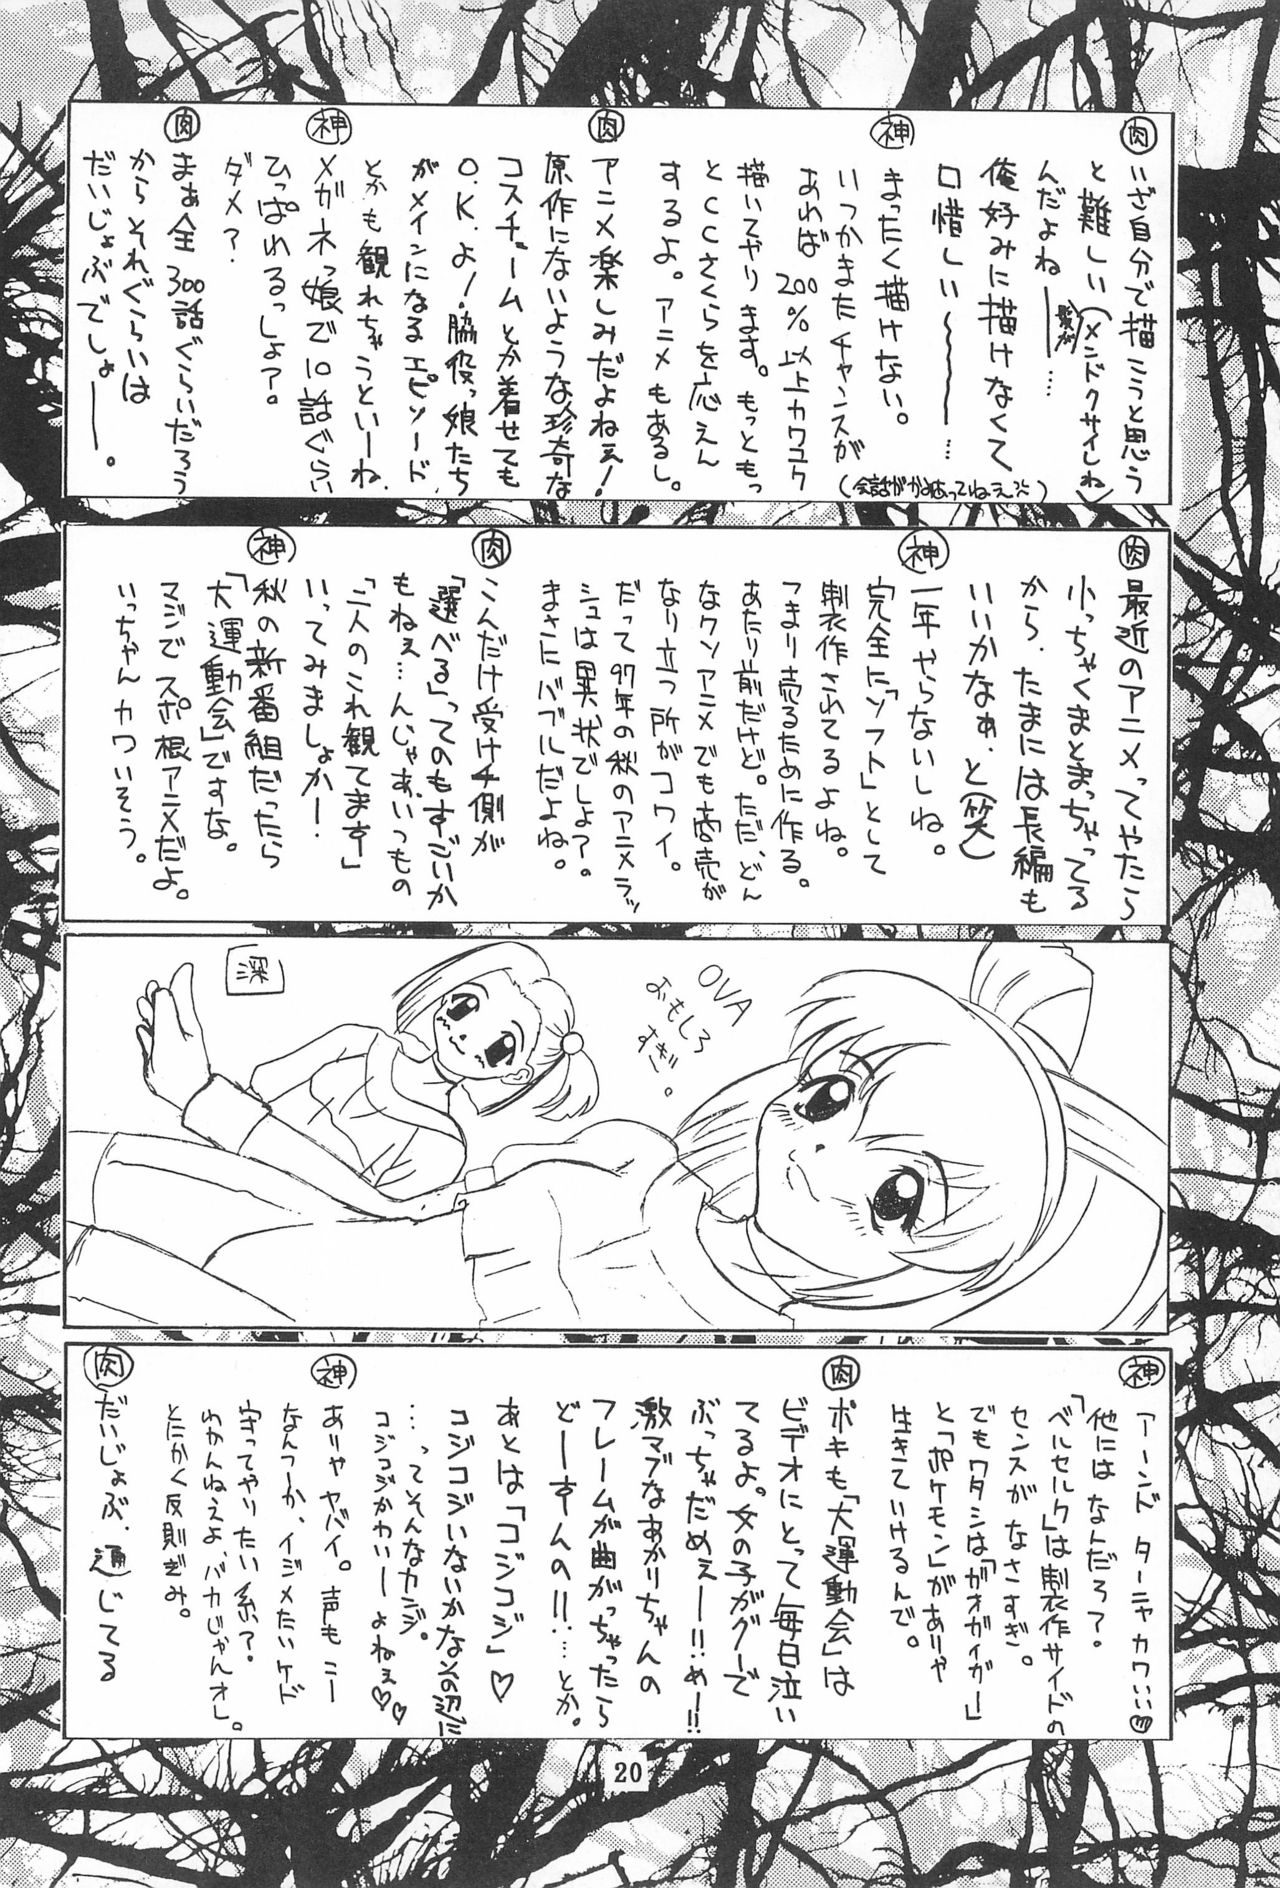 肉 いざ自分で描こうと思う
と難しい(メンドクサイしね)
んだよね――……
髪が
俺好みに描けなくて
口惜しい～～～……
神 まったく描けない。
(会話がかみあってねぇ…)
いつかまたチャンスが
あれば200%以上カワユク
描いてやります。もっともっ
とCCさくらを応えん
するよ。アニメもあるし。
肉 アニメ楽しみだよねぇ!
原作にないような珍奇な
コスチュームとか着せても
O.K.よ!脇役っ娘たち
がメインになるエピソード
とかも観れちゃうといーね
神 メガネっ娘で10話ぐらい
ひっぱれるっしょ?。
ダメ?
肉 まぁ全300話ぐらいだろう
からそれぐらいは
だいじょぶでしょ――。
肉 最近のアニメってやたら
小っちゃくまとまっちゃってる
から、たまには長編も
いいかなぁ、と(笑)
神 一年やらないしね。
完全に「ソフト」として
制作されてるよね。
つまり売るために作る。
あたり前だけど。ただ、どん
なクソアニメでも商売が
なり立つ所がコワイ。
だって97年の秋のアニメラッ
シュは異状でしょ?。
まさにバブルだよね。
肉 こんだけ受けチ側が
「選べる」ってのもすごいか
もねぇ…んじゃあ、いつもの
「二人のこれ観てます」
いってみましょか―!
神 秋の新番組だったら
「大運動会」ですな。
マジでスポ根アニメだよ。
いっちゃんカワいそう。
深
OVA
おもしろ
すぎ。
神 アーンド ターニャカワいい♡
他にはなんだろ?。
「ベルセルク」は制作サイドの
センスがなさすぎ。
でもワタシは「ガオガイガー」
と「ポケモン」がありゃ
生きていけるんで。
肉 ボキも「大運動会」は
ビデオにとって毎日泣い
てるよ。女の子がグーで
ぶっちゃだめぇー!!めー!!
激マブなあかりちゃんの
フレームが曲がっちゃったら
どーすんの!!…とか。
あとは「コジコジ」♡
コジコジいないかなその辺に
…ってそんなカンジ。
コジコジかわいーよねぇ♡♡
神 ありゃヤバイ。声もこー
なんつーか、イジメたいケド
守ってやりたい系?
わかんねえよ、バカじゃんオレ。
とにかく反則ぎみ。
肉 だいじょぶ、通じてる
20